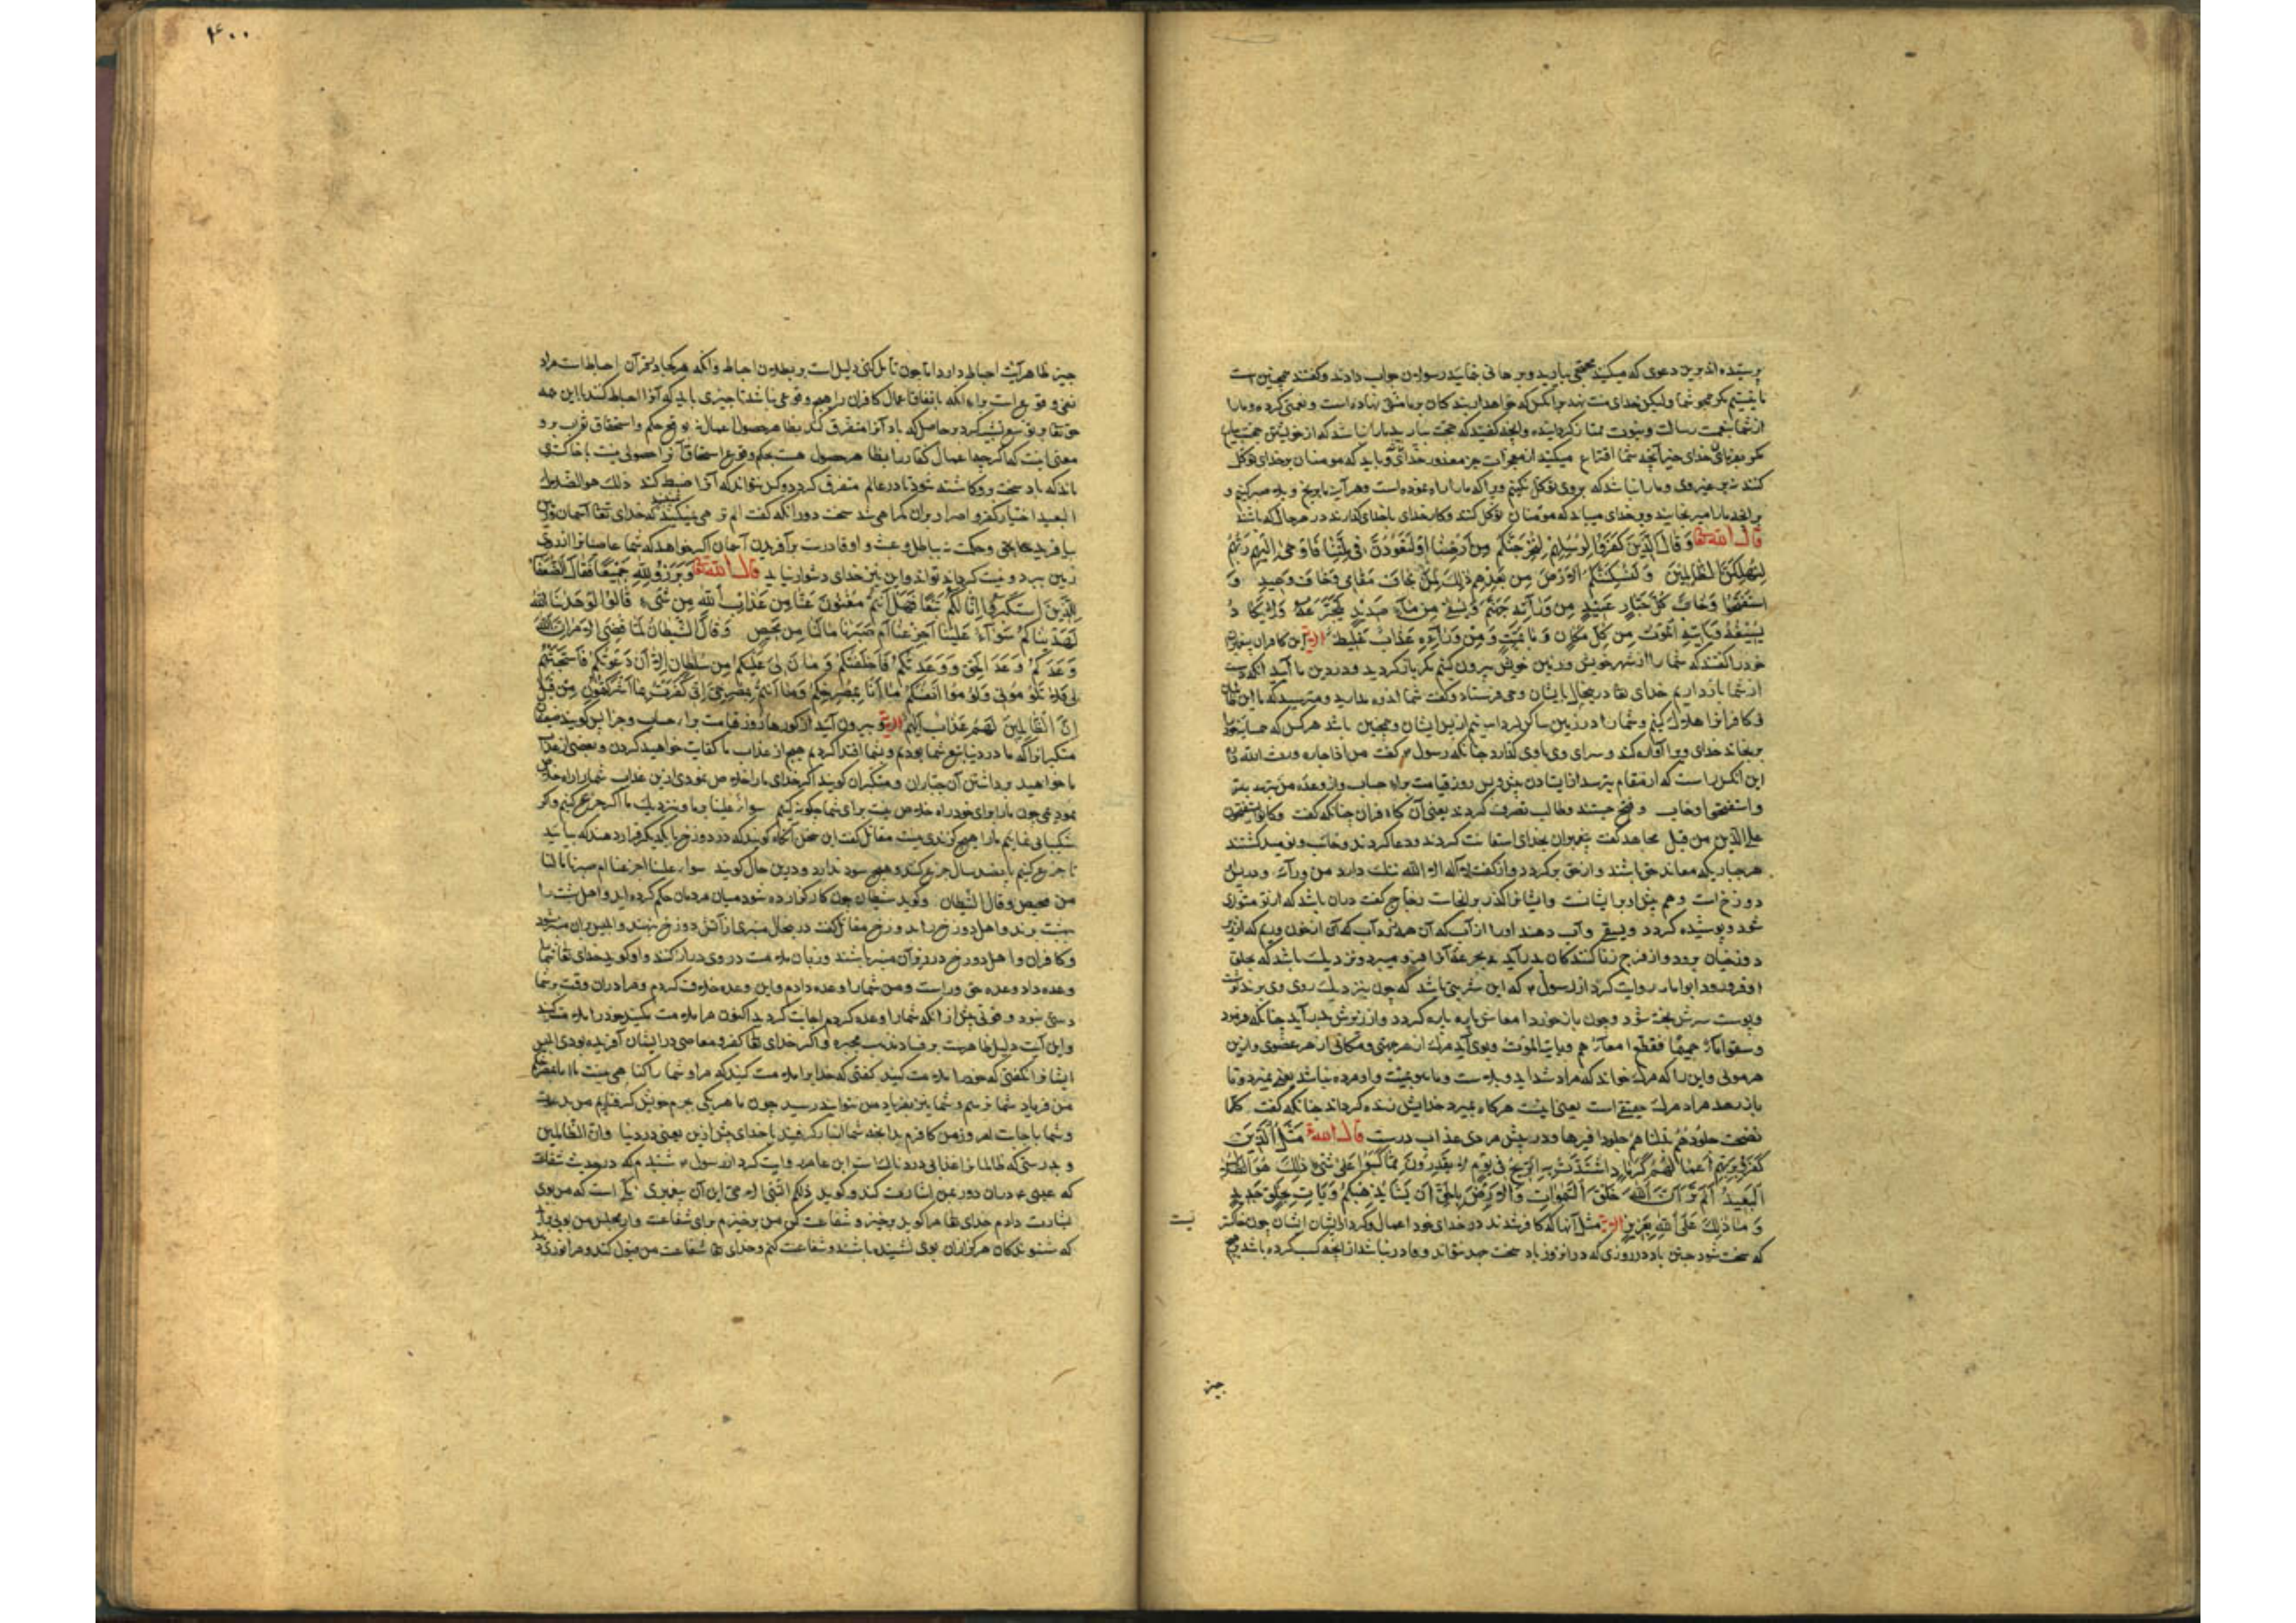 پرستیده اند برین دعوی که میکنید حجتی بیارید و برهانی بنمایید رسولان جواب دادند و گفتند همچنین است
ما نیستیم مگر همچو شما ولیکن خدای منت نهد بر آنکس که خواهد از بندگان بر ما منتی نهاده است و نعمتی کرده و ما را
از شما بنعمت رسالت و نبوت ممتاز گردانیده و آنچه گفتید که حجت بیارید ما را نباشد که از خویشتن حجت بیاریم
مگر بفرمان خدای جز آنچه شما اقتراح میکنید از معجزات جز مقدور خدای و باید که مومنان بر خدای توکل
کنند نه بر غیر وی و ما را نباشد که بر وی توکل نکنیم و او ما را راه نموده است و هر آینه ما برنج و بلا صبر کنیم و
بر آنچه ما را میرنجانید و بر خدای میباید که مومنان توکل کنند و کار خدای با خدای گذارند در هر حال که باشند
قال الله تعا وَقَالَ الَّذِينَ كَفَرُوا لِرُسُلِهِمْ لَنُخْرِجَنَّكُم مِّنْ أَرْضِنَا أَوْ لَتَعُودُنَّ فِي مِلَّتِنَا فَأَوْحَىٰ إِلَيْهِمْ رَبُّهُمْ
لَنُهْلِكَنَّ الظَّالِمِينَ وَلَنُسْكِنَنَّكُمُ الْأَرْضَ مِن بَعْدِهِمْ ذَٰلِكَ لِمَنْ خَافَ مَقَامِي وَخَافَ وَعِيدِ وَ
اسْتَفْتَحُوا وَخَابَ كُلُّ جَبَّارٍ عَنِيدٍ مِّن وَرَائِهِ جَهَنَّمُ وَيُسْقَىٰ مِن مَّاءٍ صَدِيدٍ يَتَجَرَّعُهُ وَلَا يَكَادُ
يُسِيغُهُ وَيَأْتِيهِ الْمَوْتُ مِن كُلِّ مَكَانٍ وَمَا هُوَ بِمَيِّتٍ وَمِن وَرَائِهِ عَذَابٌ غَلِيظٌ الآیه این کافران پیغمبران
خود را گفتند که شما را از شهر خویش و زمین خویش بیرون کنیم مگر باز گردید و در دین ما آیید
از شما باز داریم خدای تعا در آنحال بایشان وحی فرستاد و گفت شما اندوه مدارید و مترسید که ما این ظالمان
و کافرانرا هلاک کنیم و شما را در زمین ساکن گردانیم از پس ایشان و همچنین باشد هر کس که همسایه خود را
برنجاند خدای ویرا آواره کند و سرای وی باوی گذارد چنانکه رسول گفت من اذا جاره ورثه الله داره
این آنکس راست که از مقام بترسد از ایستادن پیش من روز قیامت برای حساب و از وعده من بترسد
واستفتحوا وخاب و فتح جستند و طالب نصرت کردند یعنی آن کافران چنانکه گفت وکانوا یستفتحون
علی الذین من قبل مجاهد گفت پیغمبران بخدای استغاثت کردند و دعا کردند وخاب و نومید گشتند
هر جباری که معاند حق باشند و از حق برگردد و از گفت لا اله الا الله ننگ دارد من ورآئه و در پیش
دوزخ است و هم پیش او برایشانست و ایشانرا گذر بر آنجاست زجاج گفت دران باشد که از تو متواری
شود و پوشیده گردد ویسقی و آب دهند او را از آب که آن هم نه آب که آن از خون و ریم که از تن
دوزخیان برود و از فرج زناکنندگان بدر آید یتجرعه آنرا فرو میبرد و نزدیک باشد که بحلق
او فرو رود ابو امامه روایت کرد از رسول که این شربتی باشد که چون نزدیک روی وی برند
و پوست سرش پخته شود و چون باز خورد امعاش پاره پاره گردد و از زیرش بدر آید چنانکه فرمود
وسقوا مآء حمیما فقطع امعآءهم ویاتیه الموت و بوی آید مرگ از هر جهتی و مکانی از هر عضوی و از بن
هر مویی و این را که مرگ خواند که مراد شداید و بلاست وما هو بمیت و او مرده نباشد یعنی نمیرد و تا
باز بعد مراد مرگ حقیقی است یعنی اینست هرگاه بمیرد خدایش زنده گرداند چنانکه گفت کلما
نضجت جلودهم بدلناهم جلودا غیرها و در پیش مردی عذاب درست قال الله تعا مَثَلُ الَّذِينَ
كَفَرُوا بِرَبِّهِمْ أَعْمَالُهُمْ كَرَمَادٍ اشْتَدَّتْ بِهِ الرِّيحُ فِي يَوْمٍ لَّا يَقْدِرُونَ مِمَّا كَسَبُوا عَلَىٰ شَيْءٍ ذَٰلِكَ هُوَ الضَّلَالُ
الْبَعِيدُ أَلَمْ تَرَ أَنَّ اللَّهَ خَلَقَ السَّمَاوَاتِ وَالْأَرْضَ بِالْحَقِّ إِن يَشَأْ يُذْهِبْكُمْ وَيَأْتِ بِخَلْقٍ جَدِيدٍ
وَمَا ذَٰلِكَ عَلَى اللَّهِ بِعَزِيزٍ الآیه مثل آنها که کافر شدند در خدای خود اعمال و کردار ایشان چون خاکستر
نیست
که سخت شود جستن باد در روزی که در آن روز باد سخت جهد نتواند و قادر نباشد از آنچه کسب کرده باشد بر هیچ
چیز
۴۰۰
چیز ظاهر آیت احباط دارد اما چون تأمل کنی دلیل است بر بطلان احباط و آنکه هر کجا در قرآن احباط است مراد
نفی وقوع است برای آنکه باتفاق اعمال کافران را هیچ وقوعی نباشد تا چیزی باید که آنرا احباط کند با این همه
حق تعا بر توسع تشبیه کرد بر حاصل که باد آنرا متفرق کند بظاهر حصول اعمال نه وقوع حکم و استحقاق ثواب برو
معنی اینست که اگرچه اعمال کفار را بظاهر حصول هست بحکم وقوع استحقاق آنرا حصولی نیست با خاکستری
ماند که باد سخت بروگاشته شود تا در عالم متفرق گردد و کس نتواند که آنرا ضبط کند ذلک هو الضلال
البعید اختیار کفر و اصرار بران گمراهی شد سخت دور آنکه گفت الم تر نمی بینید که خدای تعا آسمان و زمین
بیافرید بحق و حکمت نه بباطل و عبث و او قادرست بر آفریدن آسمان اگر خواهد که شما عاصیانرا از روی
زمین ببرد و نیست گرداند تواند و این نیز خدای دشوار نیاید قال الله تعا وَبَرَزُوا لِلَّهِ جَمِيعًا فَقَالَ الضُّعَفَاءُ
لِلَّذِينَ اسْتَكْبَرُوا إِنَّا كُنَّا لَكُمْ تَبَعًا فَهَلْ أَنتُم مُّغْنُونَ عَنَّا مِنْ عَذَابِ اللَّهِ مِن شَيْءٍ قَالُوا لَوْ هَدَانَا اللَّهُ
لَهَدَيْنَاكُمْ سَوَاءٌ عَلَيْنَا أَجَزِعْنَا أَمْ صَبَرْنَا مَا لَنَا مِن مَّحِيصٍ وَقَالَ الشَّيْطَانُ لَمَّا قُضِيَ الْأَمْرُ إِنَّ اللَّهَ
وَعَدَكُمْ وَعْدَ الْحَقِّ وَوَعَدتُّكُمْ فَأَخْلَفْتُكُمْ وَمَا كَانَ لِيَ عَلَيْكُم مِّن سُلْطَانٍ إِلَّا أَن دَعَوْتُكُمْ فَاسْتَجَبْتُمْ
لِي فَلَا تَلُومُونِي وَلُومُوا أَنفُسَكُم مَّا أَنَا بِمُصْرِخِكُمْ وَمَا أَنتُم بِمُصْرِخِيَّ إِنِّي كَفَرْتُ بِمَا أَشْرَكْتُمُونِ مِن قَبْلُ
إِنَّ الظَّالِمِينَ لَهُمْ عَذَابٌ أَلِيمٌ الآیه و بیرون آیند از گورها روز قیامت برای حساب و جزا پس گویند ضعیفان
متکبرانرا که ما در دنیا تبع شما بودیم و بشما اقتدا کردیم هیچ از عذاب ما کفایت خواهید کردن و بعضی از عذاب
ما خواهید برداشتن آن جباران و متکبران گویند اگر خدای ما را خلاص نمودی ازین عذاب شما را راه خلاص
نمودمی چون ما را برای خود راه خلاص نیست برای شما چگونه کنیم سوآء علینا و ما و بنزدیک ما اگر جزع کنیم و گر
شکیبائی نمائیم ما را هیچ گزیدی نیست مقاتل گفت این سخن آنگاه گویند که در دوزخ با یکدیگر قرار دهند که بیایید
تا جزع کنیم پانصد سال جزع کنند و هیچ سود ندارد و درین حال گویند سوآء علینا اجزعنا ام صبرنا ما لنا
من محیص وقال الشیطان و گوید شیطان چون کار گزارده شود میان مردمان حکم کرده آید و اهل بهشت را
ببهشت برند و اهل دوزخ را بدوزخ مقاتل گفت در آنحال منبری از آتش دوزخ بنهند و ابلیس بران منبر شود
و کافران و اهل دوزخ در زیر آن منبر باشند و زبان ملامت در وی دراز کنند و او گوید خدای تعا شما را
وعده داد وعده حق و راست و من شما را وعده دادم و این وعده خلاف کردم و مرا دران وقت بر شما
دستی نبود و قوتی بیش از آنکه شما را وعده کردم اجابت کردید اکنون مرا ملامت مکنید خود را ملامت کنید
و این آیت دلیل ظاهرست بر فساد مذهب مجبره و اگر خدای تعا کفر و معاصی در ایشان آفریده بودی ابلیس
ایشانرا نگفتی که خود را ملامت کنید گفتی که خدا را ملامت کنید که مرا و شما را گناهی نیست ما انا بمصرخکم
من فریاد شما نرسم و شما نیز بفریاد من نتوانید رسید چون ما هر یکی بجرم خویش گرفتاریم من بدعوت
و شما باجابت امروز من کافرم بدانچه شما انباز گرفتید با خدای پیش ازین یعنی در دنیا وان الظالمین
و بدرستی که ظالمانرا عذابی دردناک است ابن عامر روایت کرد از رسول شنیدم که در حدیث شفاعت
که عیسی دران دور بمن اشارت کند و گوید ذلکم النبی الامی این آن پیغمبری است که من بوی
بشارت دادم خدای تعا مرا گوید برخیز و شفاعت کن من برخیزم برای شفاعت و از مجلس من بویی برآید
که شنوندگان هرگز از آن بوی نشنیده باشند و شفاعت کنم و خدای تعا شفاعت من قبول کند و مرا نوری دهد